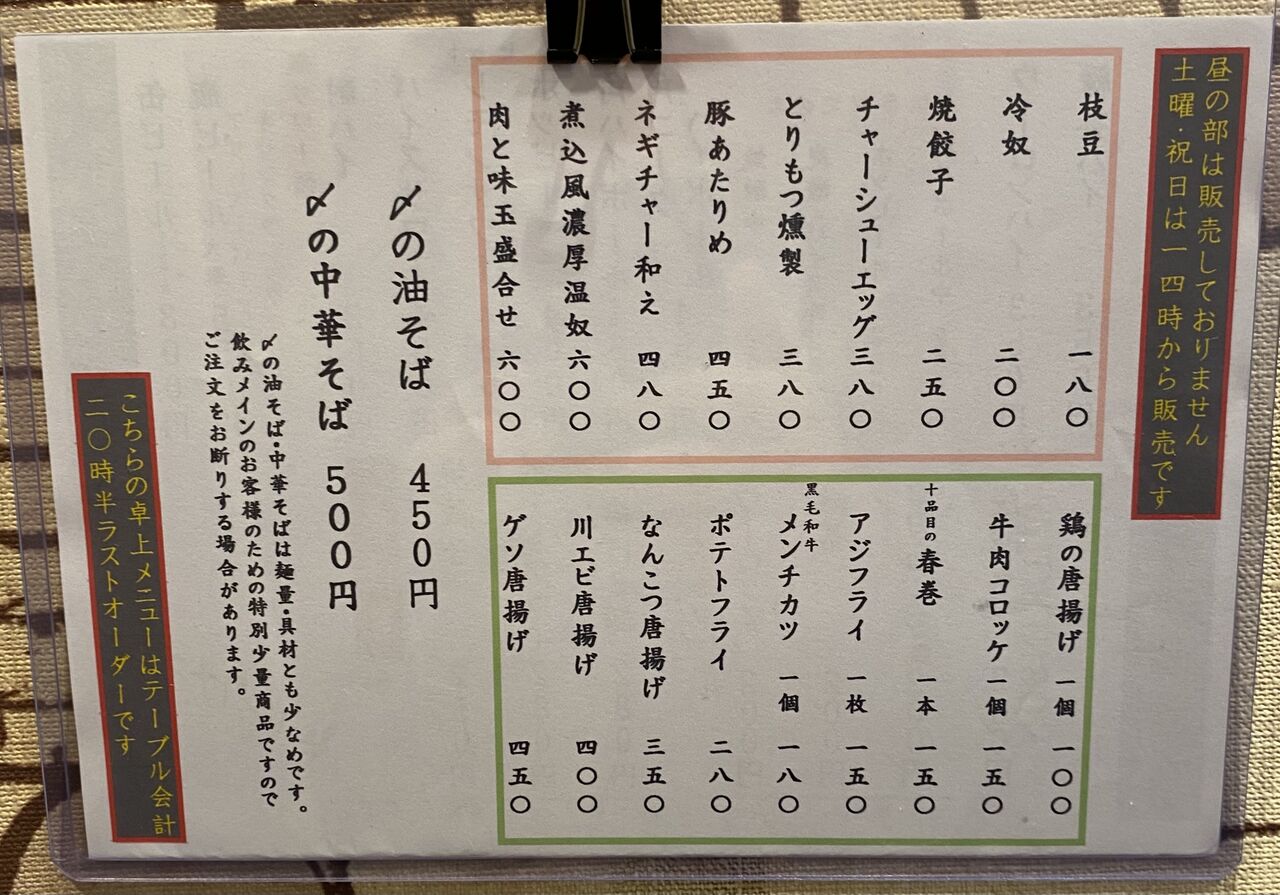 昼の部は販売しておりません
土曜・祝日は一四時から販売です
枝豆 一八〇
冷奴 二〇〇
焼餃子 二五〇
チャーシューエッグ 三八〇
とりもつ燻製 三八〇
豚あたりめ 四五〇
ネギチャー和え 四八〇
煮込風濃厚温奴 六〇〇
肉と味玉盛合せ 六〇〇
鶏の唐揚げ 一個 一〇〇
牛肉コロッケ 一個 一五〇
十品目の春巻 一本 一五〇
アジフライ 一枚 一五〇
黒毛和牛メンチカツ 一個 一八〇
ポテトフライ 二八〇
なんこつ唐揚げ 三五〇
川エビ唐揚げ 四〇〇
ゲソ唐揚げ 四五〇
〆の油そば 450円
〆の中華そば 500円
〆の油そば・中華そばは麺量・具材とも少なめです。
飲みメインのお客様のための特別少量商品ですので
ご注文をお断りする場合があります。
こちらの卓上メニューはテーブル会計
二〇時半ラストオーダーです